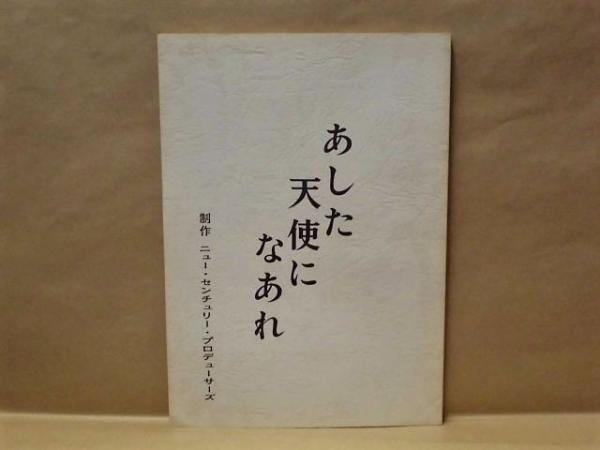 あした
天使に
なあれ
制作 ニュー・センチュリー・プロデューサーズ